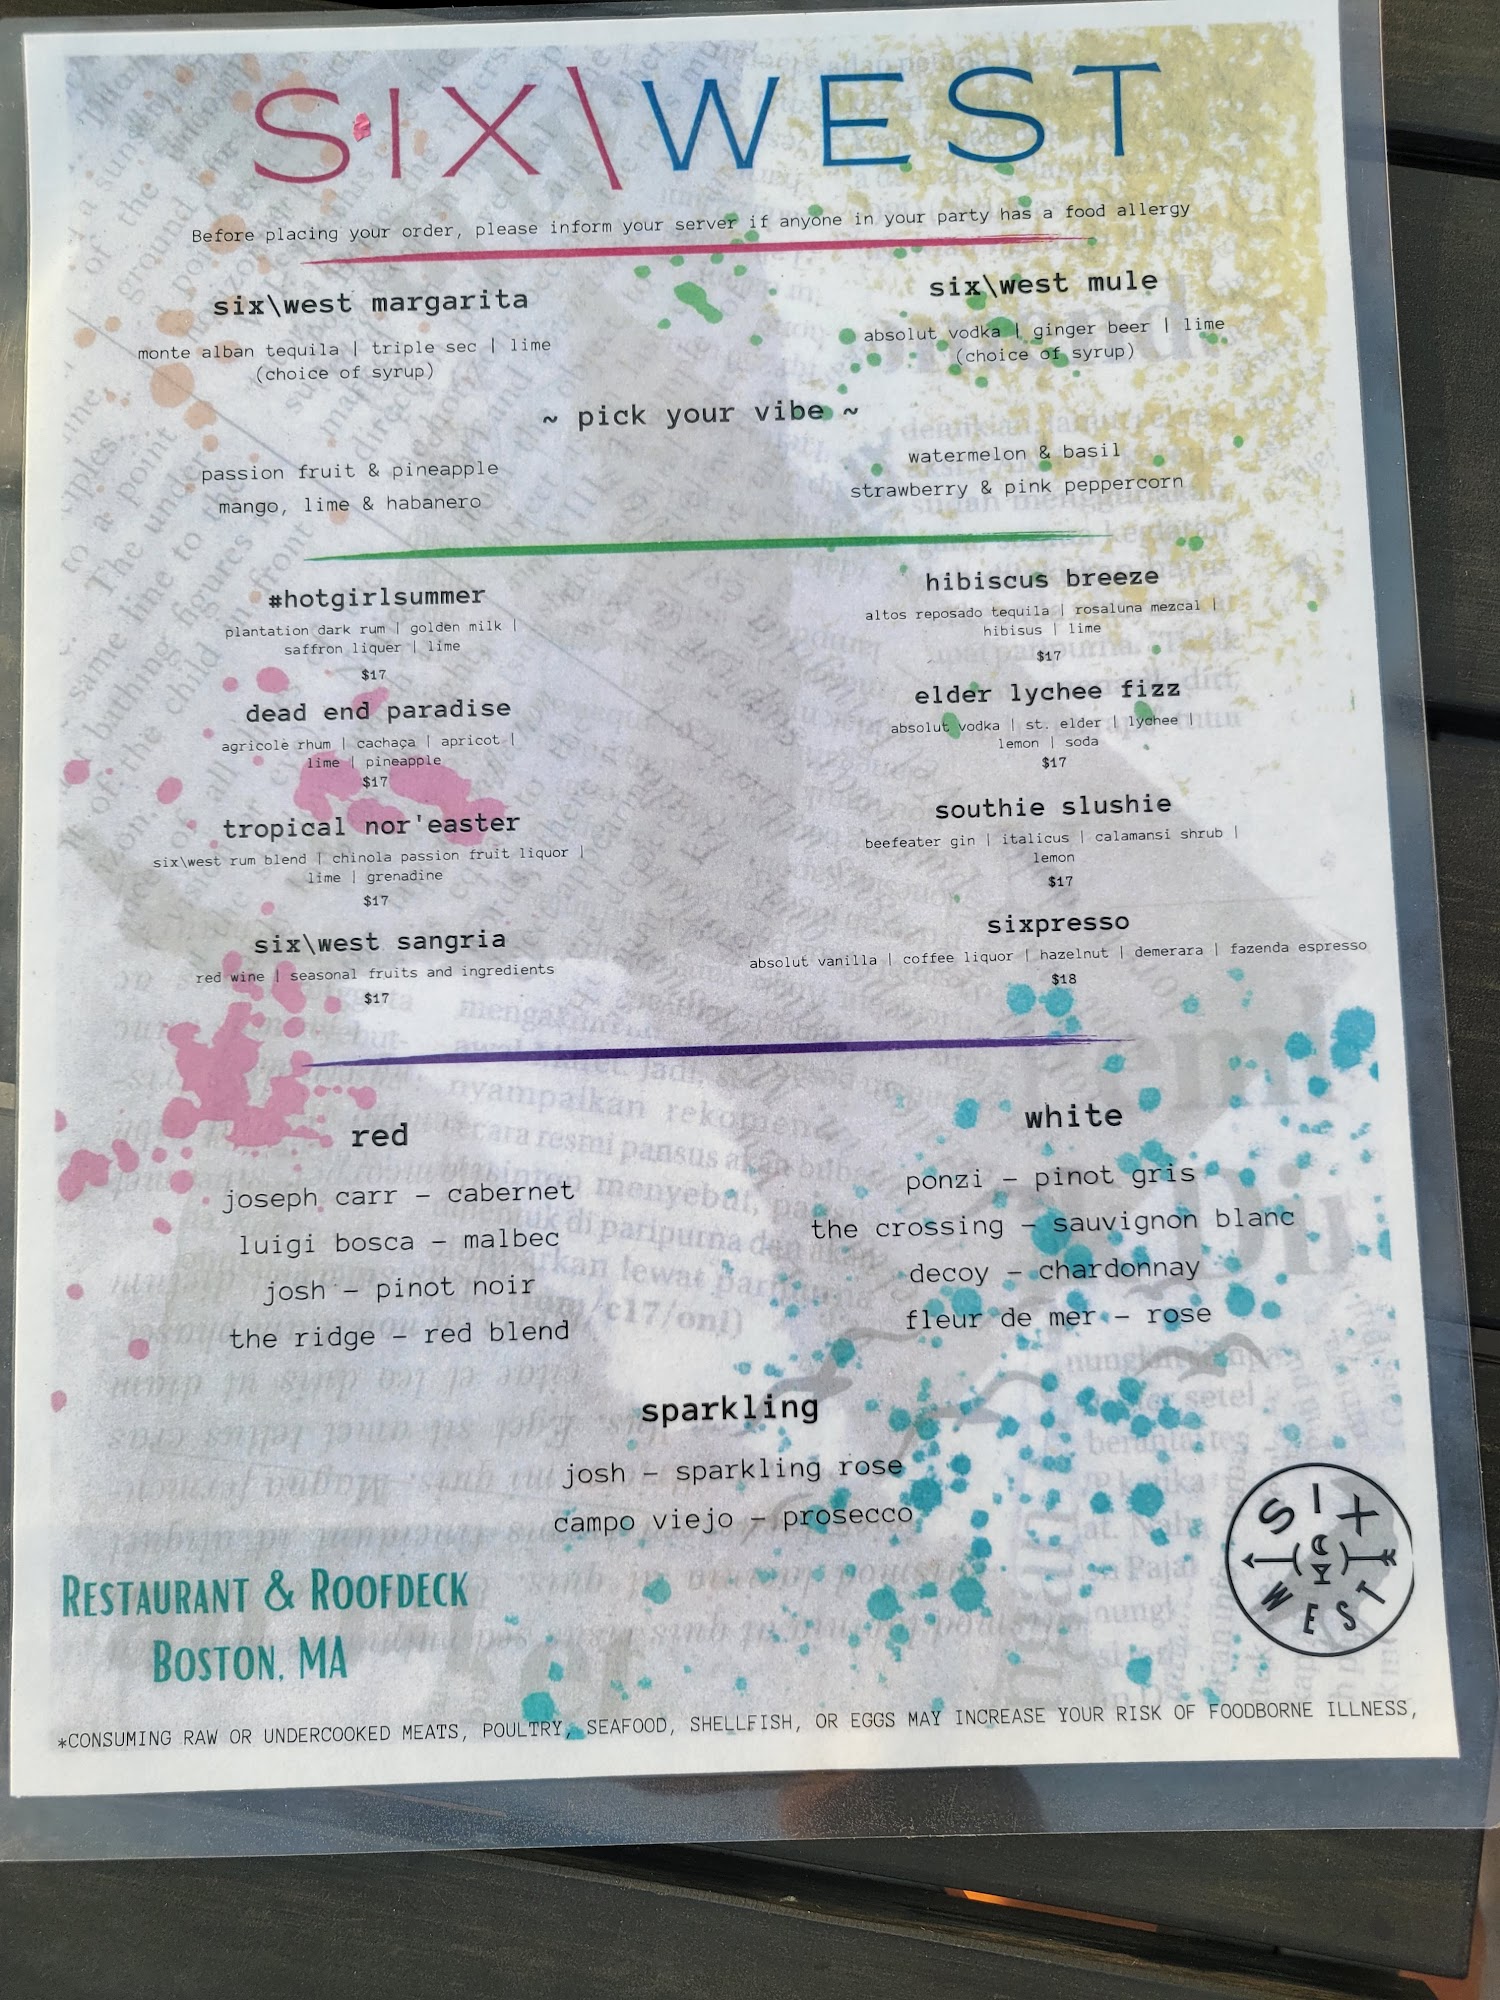 SIX\WEST
Before placing your order, please inform your server if anyone in your party has a food allergy
six\west margarita
monte alban tequila | triple sec | lime
(choice of syrup)
six\west mule
absolut vodka | ginger beer | lime
(choice of syrup)
~ pick your vibe ~
passion fruit & pineapple
mango, lime & habanero
watermelon & basil
strawberry & pink peppercorn
#hotgirlsummer
plantation dark rum | golden milk |
saffron liquer | lime
$17
dead end paradise
agricole rhum | cachaça | apricot |
lime | pineapple
$17
tropical nor'easter
six\west rum blend | chinola passion fruit liquor |
lime | grenadine
$17
six\west sangria
red wine | seasonal fruits and ingredients
$17
hibiscus breeze
altos reposado tequila | rosaluna mezcal |
hibisus | lime
$17
elder lychee fizz
absolut vodka | st. elder | lychee |
lemon | soda
$17
southie slushie
beefeater gin | italicus | calamansi shrub |
lemon
$17
sixpresso
absolut vanilla | coffee liquor | hazelnut | demerara | fazenda espresso
$18
red
joseph carr – cabernet
luigi bosca – malbec
josh – pinot noir
the ridge – red blend
white
ponzi – pinot gris
the crossing – sauvignon blanc
decoy – chardonnay
fleur de mer – rose
sparkling
josh – sparkling rose
campo viejo – prosecco
RESTAURANT & ROOFDECK
BOSTON, MA
SIX
WEST
*CONSUMING RAW OR UNDERCOOKED MEATS, POULTRY, SEAFOOD, SHELLFISH, OR EGGS MAY INCREASE YOUR RISK OF FOODBORNE ILLNESS,